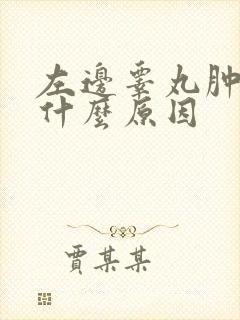 左邊睪丸肿
什麼原因
賈某某